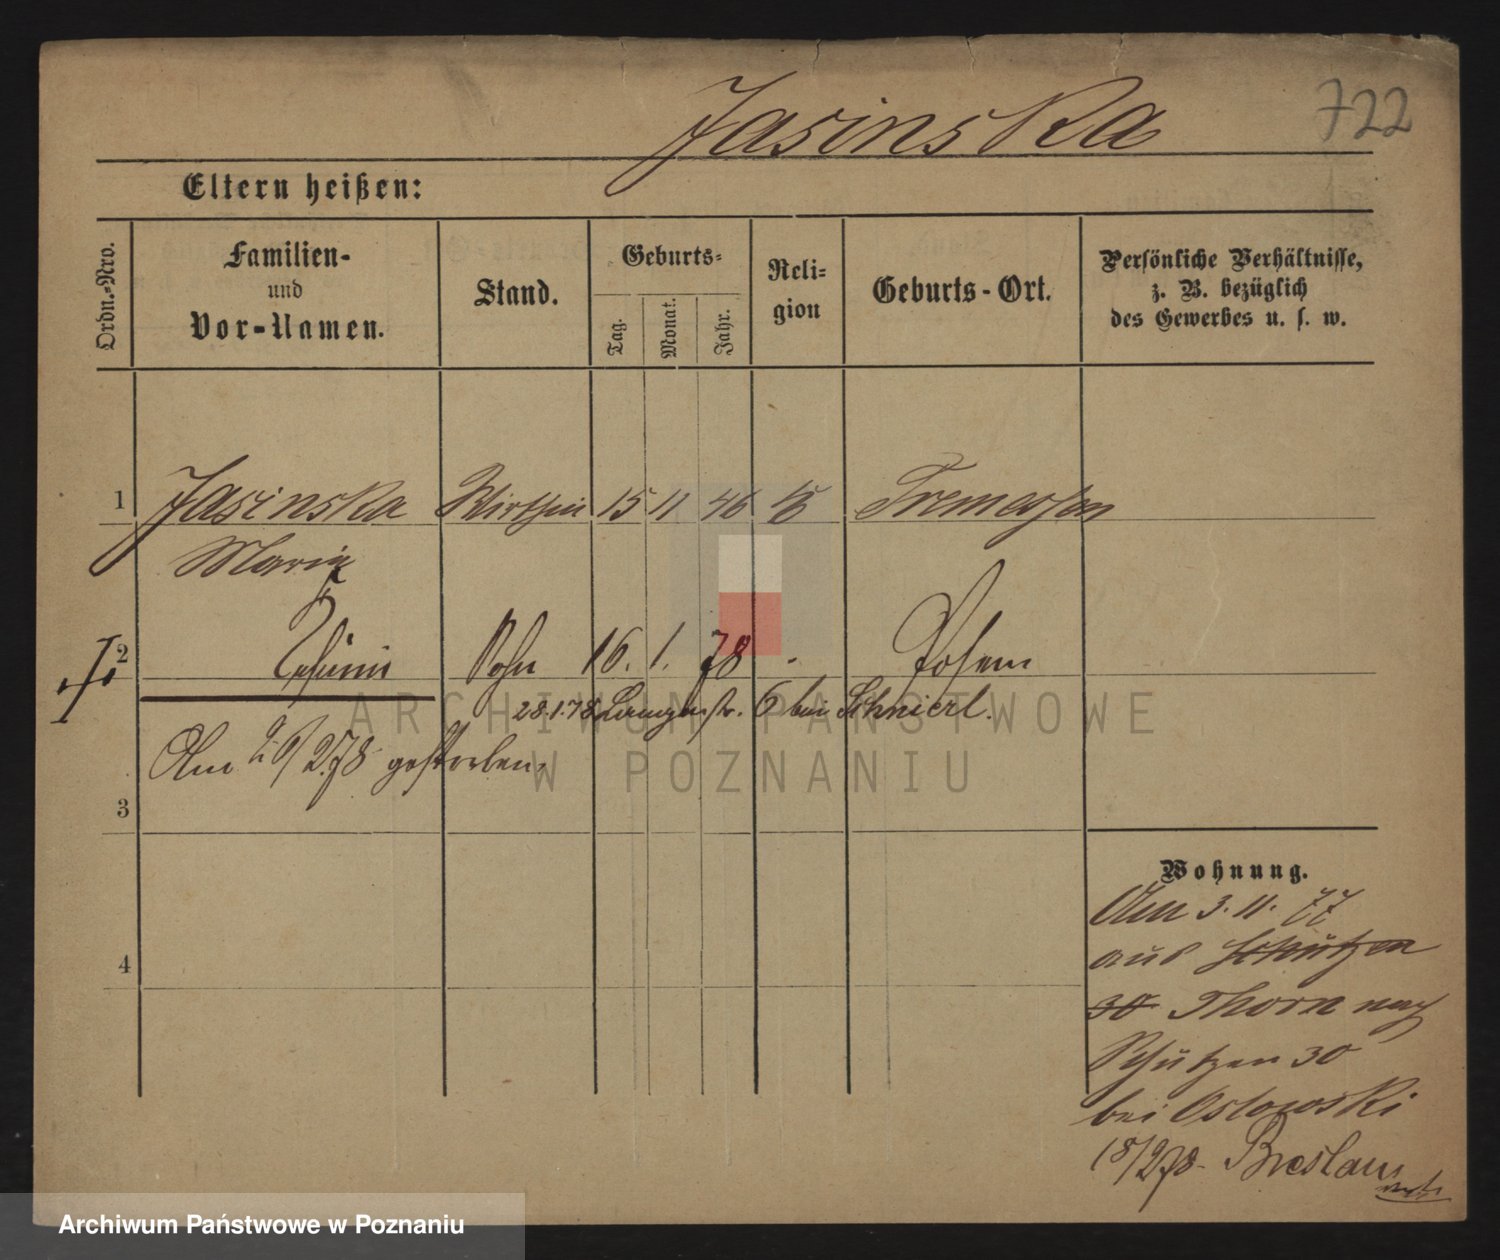 Jasinska
722
Eltern heißen:
Ordn.-Nro.
Familien-
und
Vor-Namen.
Stand.
Geburts-
Tag.
Monat.
Jahr.
Reli-
gion
Geburts-Ort.
Persönliche Verhältnisse,
z. B. bezüglich
des Gewerbes u. s. w.
1 Jasinska Wirthin 15 11 46 k Tremessen
Maria
2 Sohn 16. 1. 78 Posen
28.1.78 Langestr. 6 bei Schnierl.
Am 26/2.78 gestorben.
3
4
Wohnung.
Am 3. 11. 77
aus Schützen
30 Thorn nach
Schützen 30
bei Ostowski
18/2 78. Breslau
ARCHIWUM PAŃSTWOWE
W POZNANIU
Archiwum Państwowe w Poznaniu